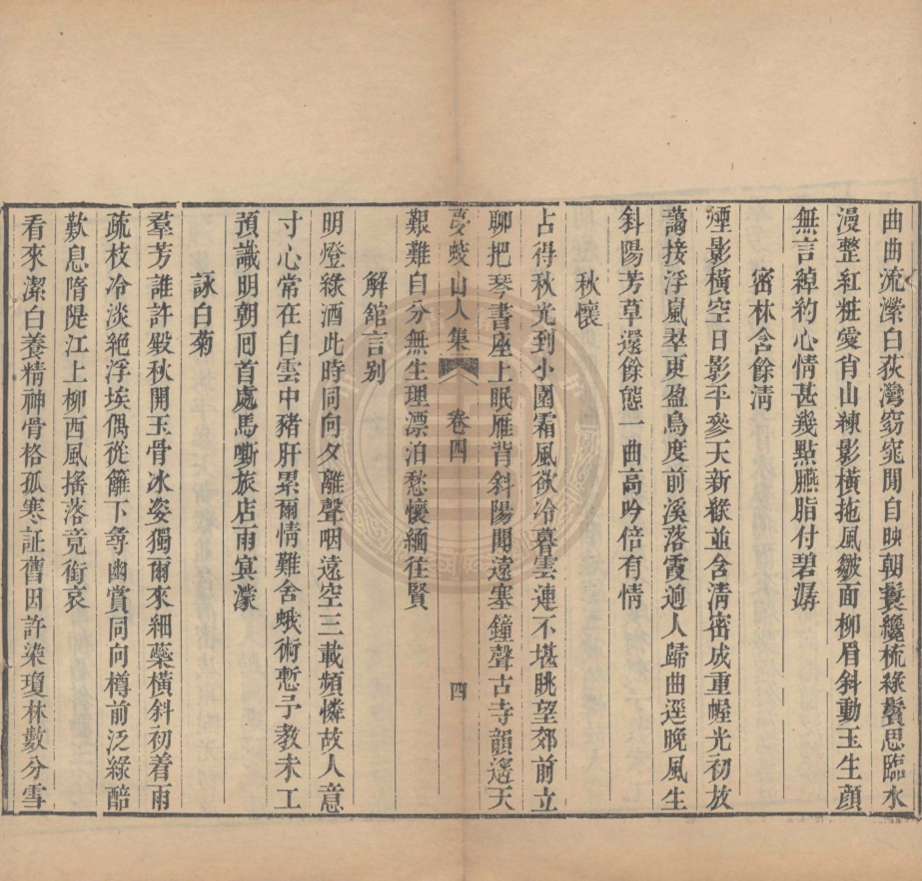 曲曲流濴白荻灣窈窕閒自映朝鬟纔梳綠鬢思臨水
漫整紅粧愛肖山練影橫拖風皺面柳眉斜動玉生顏
無言綽約心情甚幾點臙脂付碧潺
密林含餘淸
煙影橫空日影平參天新綠並含淸密成重幄光初放
藹接浮嵐羣更盈鳥度前溪落霞逈人歸曲逕晚風生
斜陽芳草還餘態一曲高吟倍有情
秋懷
占得秋光到小園霜風欲冷暮雲連不堪眺望郊前立
聊把琴書座上眠雁背斜陽聞遠塞鐘聲古寺韻遙天
蛟山人集 卷四 四
艱難自分無生理漂泊愁懷緬往賢
解館言別
明燈綠酒此時同向夕離聲咽遠空三載頻憐故人意
寸心常在白雲中豬肝累爾情難舍蛾術慙予教未工
預識明朝囘首處馬嘶旅店雨寘濛
詠白菊
羣芳誰許殿秋開玉骨冰姿獨爾來細蘂橫斜初着雨
疏枝冷淡絕浮埃偶從籬下尋幽賞同向樽前泛綠醅
歎息隋隄江上柳西風搖落竟銜哀
看來潔白養精神骨格孤寒証舊因許染瓊林數分雪